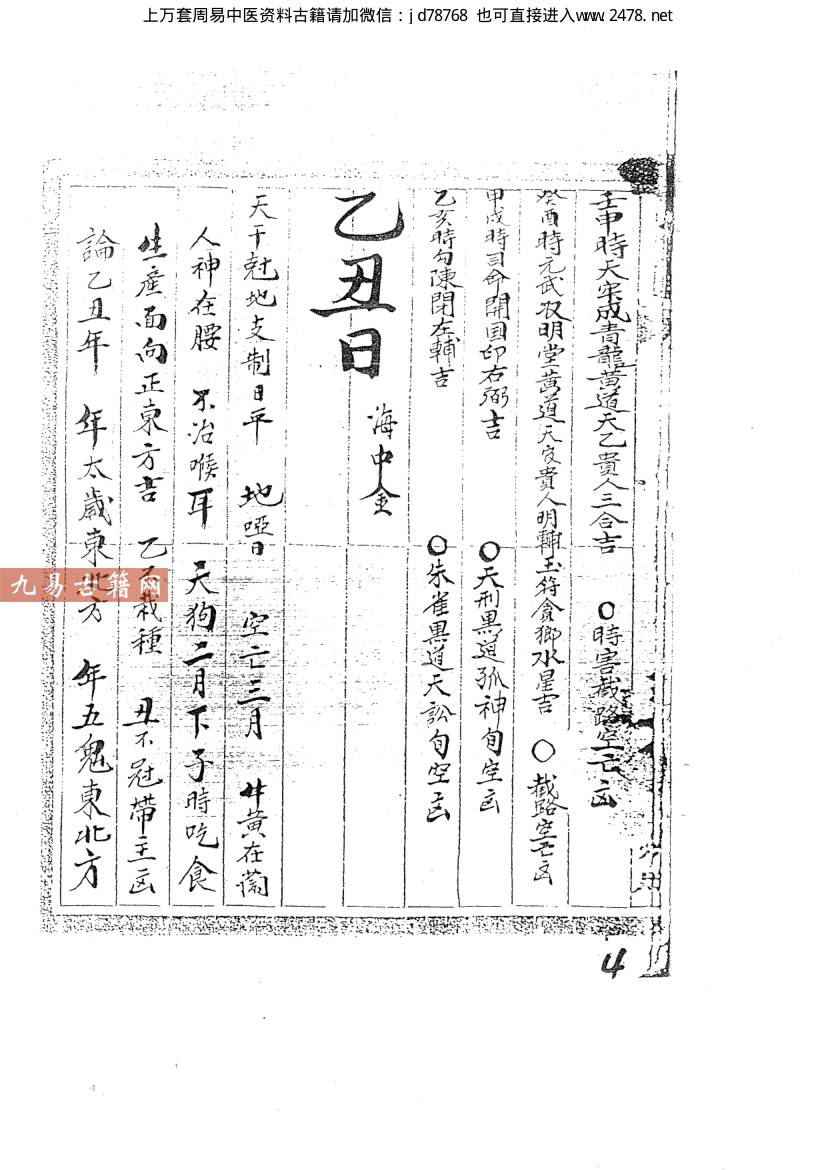 上万套周易中医资料古籍请加微信：jd78768 也可直接进入www.2478.net
壬申時天牢成青龍黄道天乙貴人三合吉 〇時害截路空亡凶
癸酉時元武收明堂黄道天官貴人明輔玉符貪鄉水星吉 〇截路空亡凶
甲戌時司命開国印右弼吉 〇天刑黒道孤神旬空凶
乙亥時勾陳閉左輔吉 〇朱雀黒道天訟旬空凶
乙丑日 海中金
天干尅地支制日平 地啞日 空亡三月 牛黄在
人神在腰 不治喉耳 天狗二月下子時吃食
生產面向正東方吉 乙不栽種 丑不冠帶主凶
論乙丑年 年太歲東北方 年五鬼東北方
九易古籍网
4